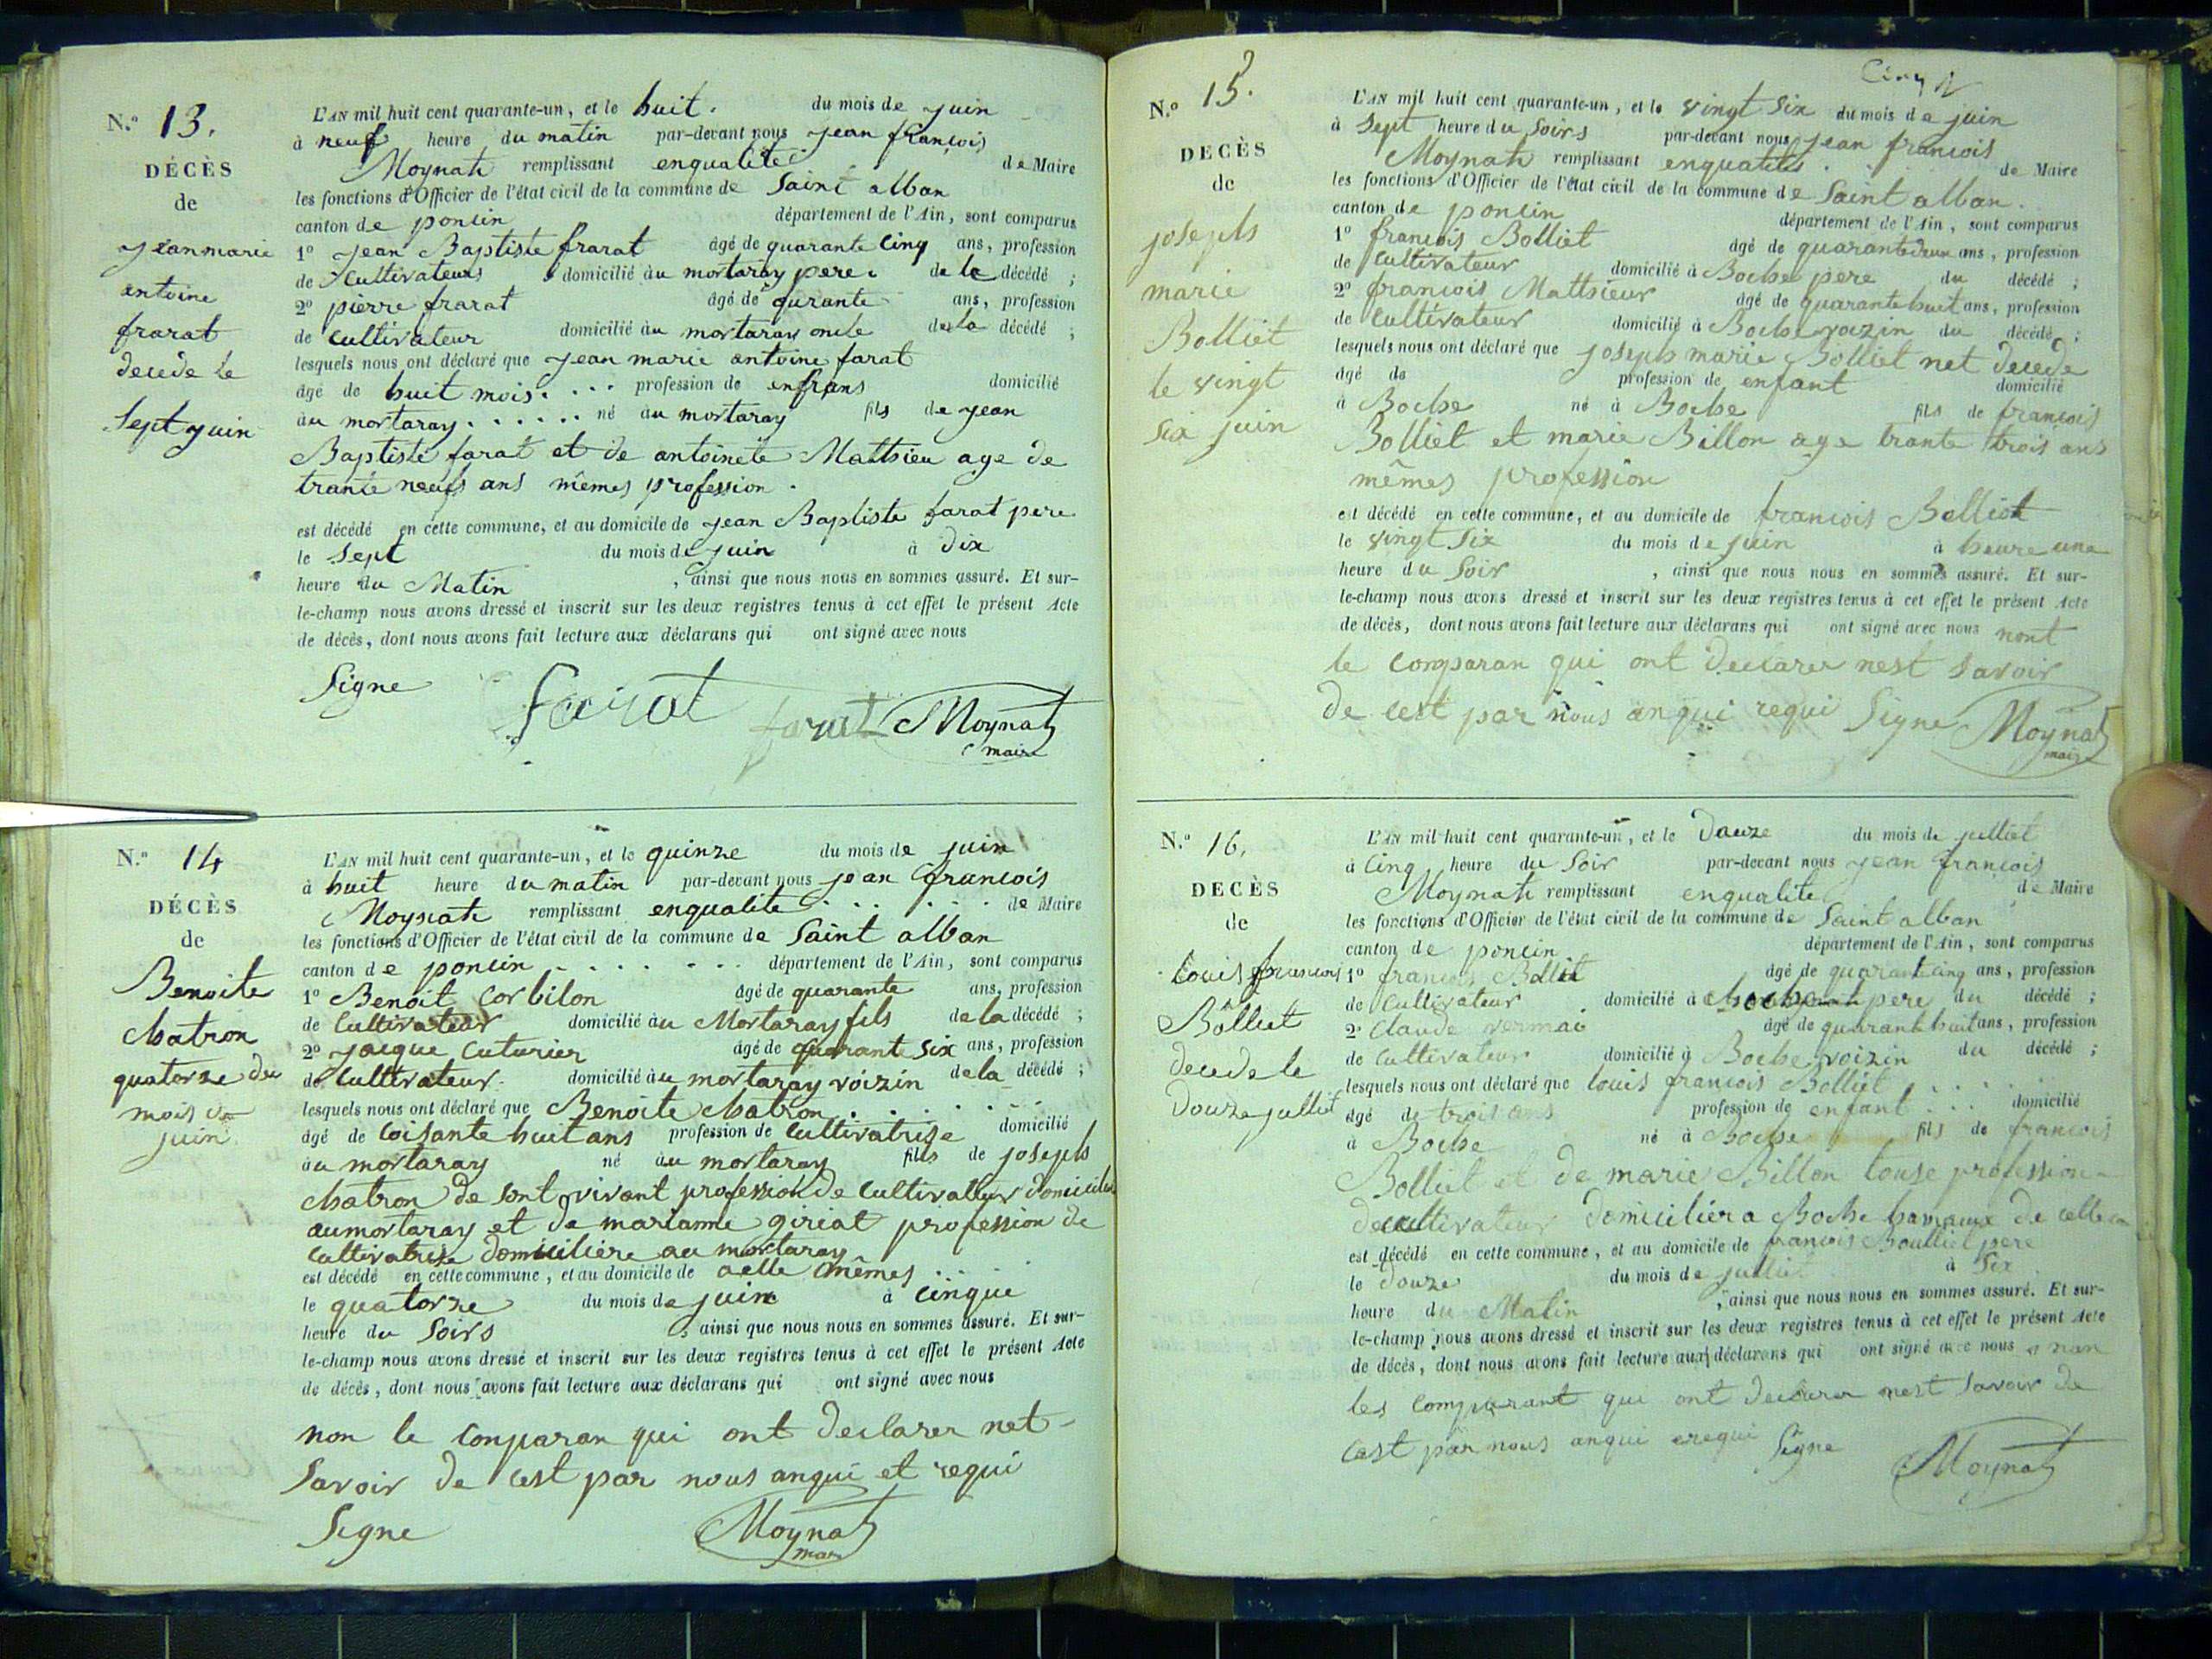 N.º 13.
DÉCÈS
de
jeanmarie
antoine
frarat
decede le
Sept juin
L'AN mil huit cent quarante-un, et le huit. du mois de juin
à neuf heure du matin par-devant nous jean francois
Moynat remplissant enqualite de Maire
les fonctions d'Officier de l'état civil de la commune de Saint alban
canton de poncin département de l'Ain, sont comparus
1º jean Baptiste frarat âgé de quarante cinq ans, profession
de Cultivateurs domicilié au mortaray pere de la décédé ;
2º pierre frarat âgé de qurante ans, profession
de Cultivateur domicilié au mortaray oncle de la décédé ;
lesquels nous ont déclaré que jean marie antoine farat
âgé de huit mois. . . . profession de enfans domicilié
au mortaray. . . . . . né au mortaray fils de jean
Baptiste farat et de antoinete Matthieu age de
trante neufs ans mêmes profession .
est décédé en cette commune, et au domicile de jean Baptiste farat pere
le Sept du mois de juin à Dix
heure du Matin , ainsi que nous nous en sommes assuré. Et sur-
le-champ nous avons dressé et inscrit sur les deux registres tenus à cet effet le présent Acte
de décès, dont nous avons fait lecture aux déclarans qui ont signé avec nous
Signe farat farat Moynat
maire
N.º 14
DÉCÈS
de
Benoite
Chatron
quatorze du
mois de
juin
L'AN mil huit cent quarante-un, et le quinze du mois de juin
à huit heure du matin par-devant nous jean francois
Moynat remplissant enqualite . . . . . . de Maire
les fonctions d'Officier de l'état civil de la commune de Saint alban
canton de poncin . . . . . . département de l'Ain, sont comparus
1º Benoit Corbilon âgé de quarante ans, profession
de Cultivateur domicilié au Mortaray fils de la décédé ;
2º jacque Cuturier âgé de quarante Six ans, profession
de Cultivateur domicilié au mortaray voizin de la décédé ;
lesquels nous ont déclaré que Benoite Chatron . . . . . .
âgé de Coisante huit ans profession de Cultivatrise domicilié
au mortaray né au mortaray fils de josephs
Chatron de sont vivant profession de Cultivateur domicilier
aumortaray et de marianne giriat profession de
Cultivatrise domiciliere au mortaray
est décédé en cette commune, et au domicile de aelle mêmes . . . .
le quatorze du mois de juin à cinque
heure du Soirs , ainsi que nous nous en sommes assuré. Et sur-
le-champ nous avons dressé et inscrit sur les deux registres tenus à cet effet le présent Acte
de décès, dont nous avons fait lecture aux déclarans qui ont signé avec nous
non le Conparan qui ont declarer net
Savoir de cest par nous anqui et requi
Signe Moynat
N.º 15.
DECÈS
de
josephs
marie
Bolliet
le vingt
six juin
L'AN mil huit cent quarante-un, et le vingt Six du mois de juin
à Sept heure du Soirs par-devant nous jean francois
Moynat remplissant enqualites . de Maire
les fonctions d'Officier de l'état civil de la commune de Saint alban .
canton de poncin département de l'Ain, sont comparus
1º francois Bolliet âgé de quarantedeux ans, profession
de Cultivateur domicilié à Boche pere du décédé ;
2º francois Matthieur âgé de quarante huit ans, profession
de Cultivateur domicilié à Boche voizin du décédé ;
lesquels nous ont déclaré que josephs marie Bolliet net decede
âgé de profession de enfant domicilié
à Boche né à Boche fils de francois
Bolliet et marie Billon age trante trois ans
mêmes profession
est décédé en cette commune, et au domicile de francois Bolliet
le vingt Six du mois de juin à heure une
heure du Soir , ainsi que nous nous en sommes assuré. Et sur-
le-champ nous avons dressé et inscrit sur les deux registres tenus à cet effet le présent Acte
de décès, dont nous avons fait lecture aux déclarans qui ont signé avec nous nont
le Comparan qui ont declarer nest Savoir
de cest par nous anqui requi Signe Moynat
maire
N.º 16.
DECÈS
de
louis francois
Bolliet
decede le
Douze julliet
L'AN mil huit cent quarante-un, et le Douze du mois de julliet
à Cinq heure du Soir par-devant nous jean francois
Moynat remplissant enqualite de Maire
les fonctions d'Officier de l'état civil de la commune de Saint alban
canton de poncin département de l'Ain, sont comparus
1º francois Bolliet âgé de quarante cinq ans, profession
de Cultivateur domicilié à pere du décédé ;
2º Claude vermai âgé de quarante huit ans, profession
de Cultivateur domicilié à Boche voizin du décédé ;
lesquels nous ont déclaré que louis francois Bolliet . . . .
âgé de trois ans profession de enfant . . . domicilié
à Boche né à Boche fils de francois
Bolliet et de marie Billon touse profession
decultivateur domicilier a Boche hamaux de celle
est décédé en cette commune, et au domicile de francois Boulliet pere
le douze du mois de julliet à Six
heure du Matin , ainsi que nous nous en sommes assuré. Et sur-
le-champ nous avons dressé et inscrit sur les deux registres tenus à cet effet le présent Acte
de décès, dont nous avons fait lecture aux déclarans qui ont signé avec nous
les Comparant qui ont declarer nest Savoir de
Cest par nous anqui erequi Signe Moynat